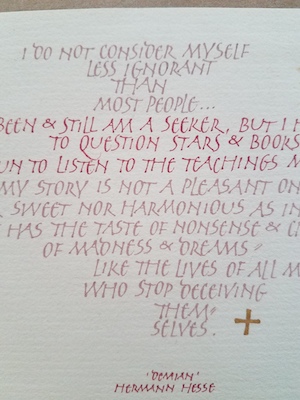 I DO NOT CONSIDER MYSELF
LESS IGNORANT
THAN
MOST PEOPLE...
BEEN & STILL AM A SEEKER, BUT I H
TO QUESTION STARS & BOOKS
UN TO LISTEN TO THE TEACHINGS M
MY STORY IS NOT A PLEASANT ON
SWEET NOR HARMONIOUS AS IN
HAS THE TASTE OF NONSENSE & C
OF MADNESS & DREAMS =
LIKE THE LIVES OF ALL M
WHO STOP DECEIVING
THEM=
SELVES.
'DEMIAN'
HERMANN HESSE